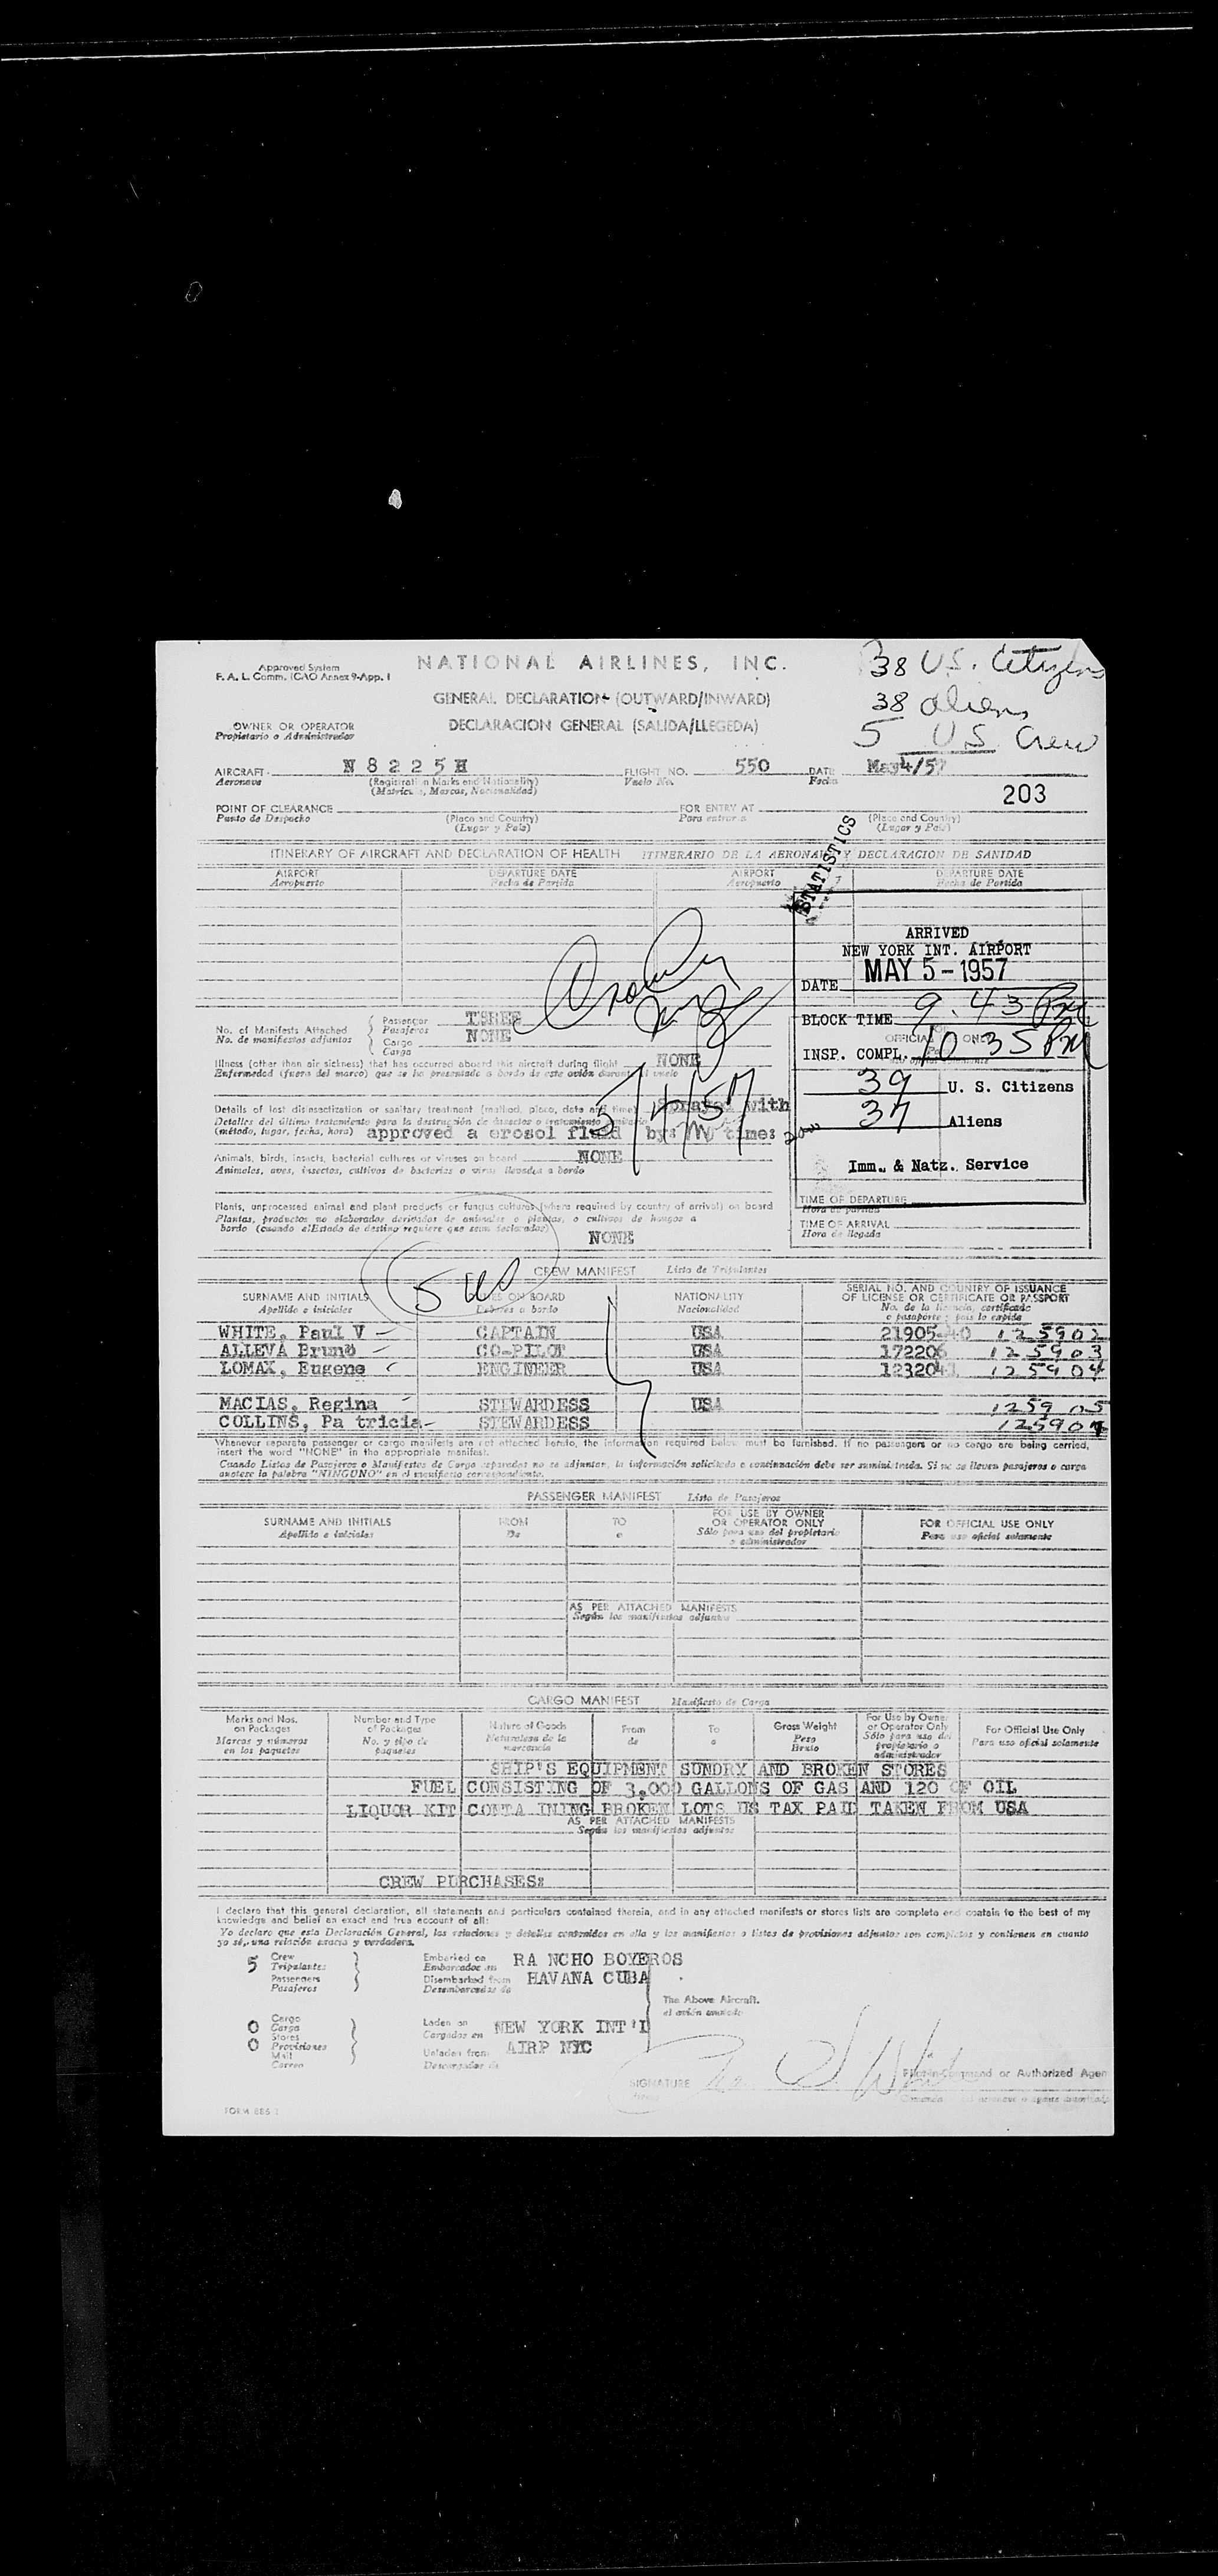 Approved System
F. A. L. Comm. ICAO Annex 9-App. I
NATIONAL AIRLINES, INC.
38 U.S. Citizens
GENERAL DECLARATION (OUTWARD/INWARD)
38 aliens
OWNER OR OPERATOR
Propietario o Administrador
DECLARACION GENERAL (SALIDA/LLEGEDA)
5 US Crew
AIRCRAFT N 8 2 2 5 H FLIGHT NO. 550 DATE May 4/57
Aeronave (Registration Marks and Nationality) Vuelo No. Fecha
(Matricula, Marcas, Nacionalidad)
203
POINT OF CLEARANCE FOR ENTRY AT
Punto de Despacho (Place and Country) Para entrar a (Place and Country)
(Lugar y Pais) (Lugar y Pais)
STATISTICS
ITINERARY OF AIRCRAFT AND DECLARATION OF HEALTH ITINERARIO DE LA AERONAVE Y DECLARACION DE SANIDAD
AIRPORT DEPARTURE DATE AIRPORT DEPARTURE DATE
Aeropuerto Fecha de Partida Aeropuerto Fecha de Partida
ARRIVED
NEW YORK INT. AIRPORT
DATE MAY 5-1957
BLOCK TIME 9.43 PM
INSP. COMPL. 10 35 PM
39 U. S. Citizens
37 Aliens
Imm. & Natz. Service
TIME OF DEPARTURE
Hora de partida
TIME OF ARRIVAL
Hora de llegada
No. of Manifests Attached Passenger THREE
No. de manifiestos adjuntos Pasajeros
Cargo NONE
Carga
Illness (other than air sickness) that has occurred aboard this aircraft during flight NONE
Enfermedad (fuera del mareo) que se ha presentado a bordo de este avión durante el vuelo
5/4/57
Details of last disinsectization or sanitary treatment (method, place, date and time) Sprayed with
Detalles del último tratamiento para la destrucción de insectos o tratamiento sanitario
(método, lugar, fecha, hora) approved a erosol fluid by: time:
Animals, birds, insects, bacterial cultures or viruses on board NONE
Animales, aves, insectos, cultivos de bacterias o virus llevados a bordo
Plants, unprocessed animal and plant products or fungus cultures (where required by country of arrival) on board
Plantas, productos no elaborados derivados de animales o plantas, o cultivos de hongos a
bordo (cuando el Estado de destino requiere que sean declarados)
NONE
5 US
CREW MANIFEST Lista de Tripulantes
SURNAME AND INITIALS DUTIES ON BOARD NATIONALITY SERIAL NO. AND COUNTRY OF ISSUANCE
OF LICENSE OR CERTIFICATE OR PASSPORT
Apellido e iniciales Deberes a bordo Nacionalidad No. de la licencia, certificado
o pasaporte y pais lo expide
WHITE, Paul V CAPTAIN USA 21905-40 125902
ALLEVA Bruno CO-PILOT USA 172206 125903
LOMAX, Eugene ENGINEER USA 1232041 125904
MACIAS, Regina STEWARDESS USA 125905
COLLINS, Pa tricia STEWARDESS
Whenever separate passenger or cargo manifests are not attached hereto, the information required below must be furnished. If no passengers or no cargo are being carried,
insert the word "NONE" in the appropriate manifest.
Cuando Listas de Pasajeros o Manifiestos de Carga separados no se adjuntan, la información solicitada a continuación debe ser suministrada. Si no se llevan pasajeros o carga
anotese la palabra "NINGUNO" en el manifiesto correspondiente.
PASSENGER MANIFEST Lista de Pasajeros
SURNAME AND INITIALS FROM TO FOR USE BY OWNER
OR OPERATOR ONLY FOR OFFICIAL USE ONLY
Apellido e iniciales De a Sólo para uso del propietario
o administrador Para uso oficial solamente
AS PER ATTACHED MANIFESTS
Según los manifiestos adjuntos
CARGO MANIFEST Manifiesto de Carga
Marks and Nos.
on Packages
Marcas y números
en los paquetes
Number and Type
of Packages
No. y tipo de
paquetes
Nature of Goods
Naturaleza de la
mercancía
From
de
To
a
Gross Weight
Peso
Bruto
For Use by Owner
or Operator Only
Sólo para uso del
propietario o
administrador
For Official Use Only
Para uso oficial solamente
SHIP'S EQUIPMENT SUNDRY AND BROKEN STORES
FUEL CONSISTING OF 3,000 GALLONS OF GAS AND 120 OF OIL
LIQUOR KIT CONTA INING BROKEN LOTS US TAX PAID TAKEN FROM USA
AS PER ATTACHED MANIFESTS
Según los manifiestos adjuntos
CREW PURCHASES:
I declare that this general declaration, all statements and particulars contained therein, and in any attached manifests or stores lists are complete and contain to the best of my
knowledge and belief an exact and true account of all:
Yo declaro que esta Declaración General, las relaciones y detalles contenidos en ella y los manifiestos o listas de provisiones adjuntos son completos y contienen en cuanto
yo sé, una relación exacta y verdadera.
5 Crew
Tripulantes
Passengers
Pasajeros
Embarked on RA NCHO BOYEROS
Embarcados en
Disembarked from HAVANA CUBA
Desembarcados de
The Above Aircraft.
el avión anotado
0 Cargo
Carga
0 Stores
Provisiones
Mail
Correo
Laden on NEW YORK INT'L
Cargados en
Unladen from AIRP NYC
Descargados de
SIGNATURE
Pilot-in-Command or Authorized Agen